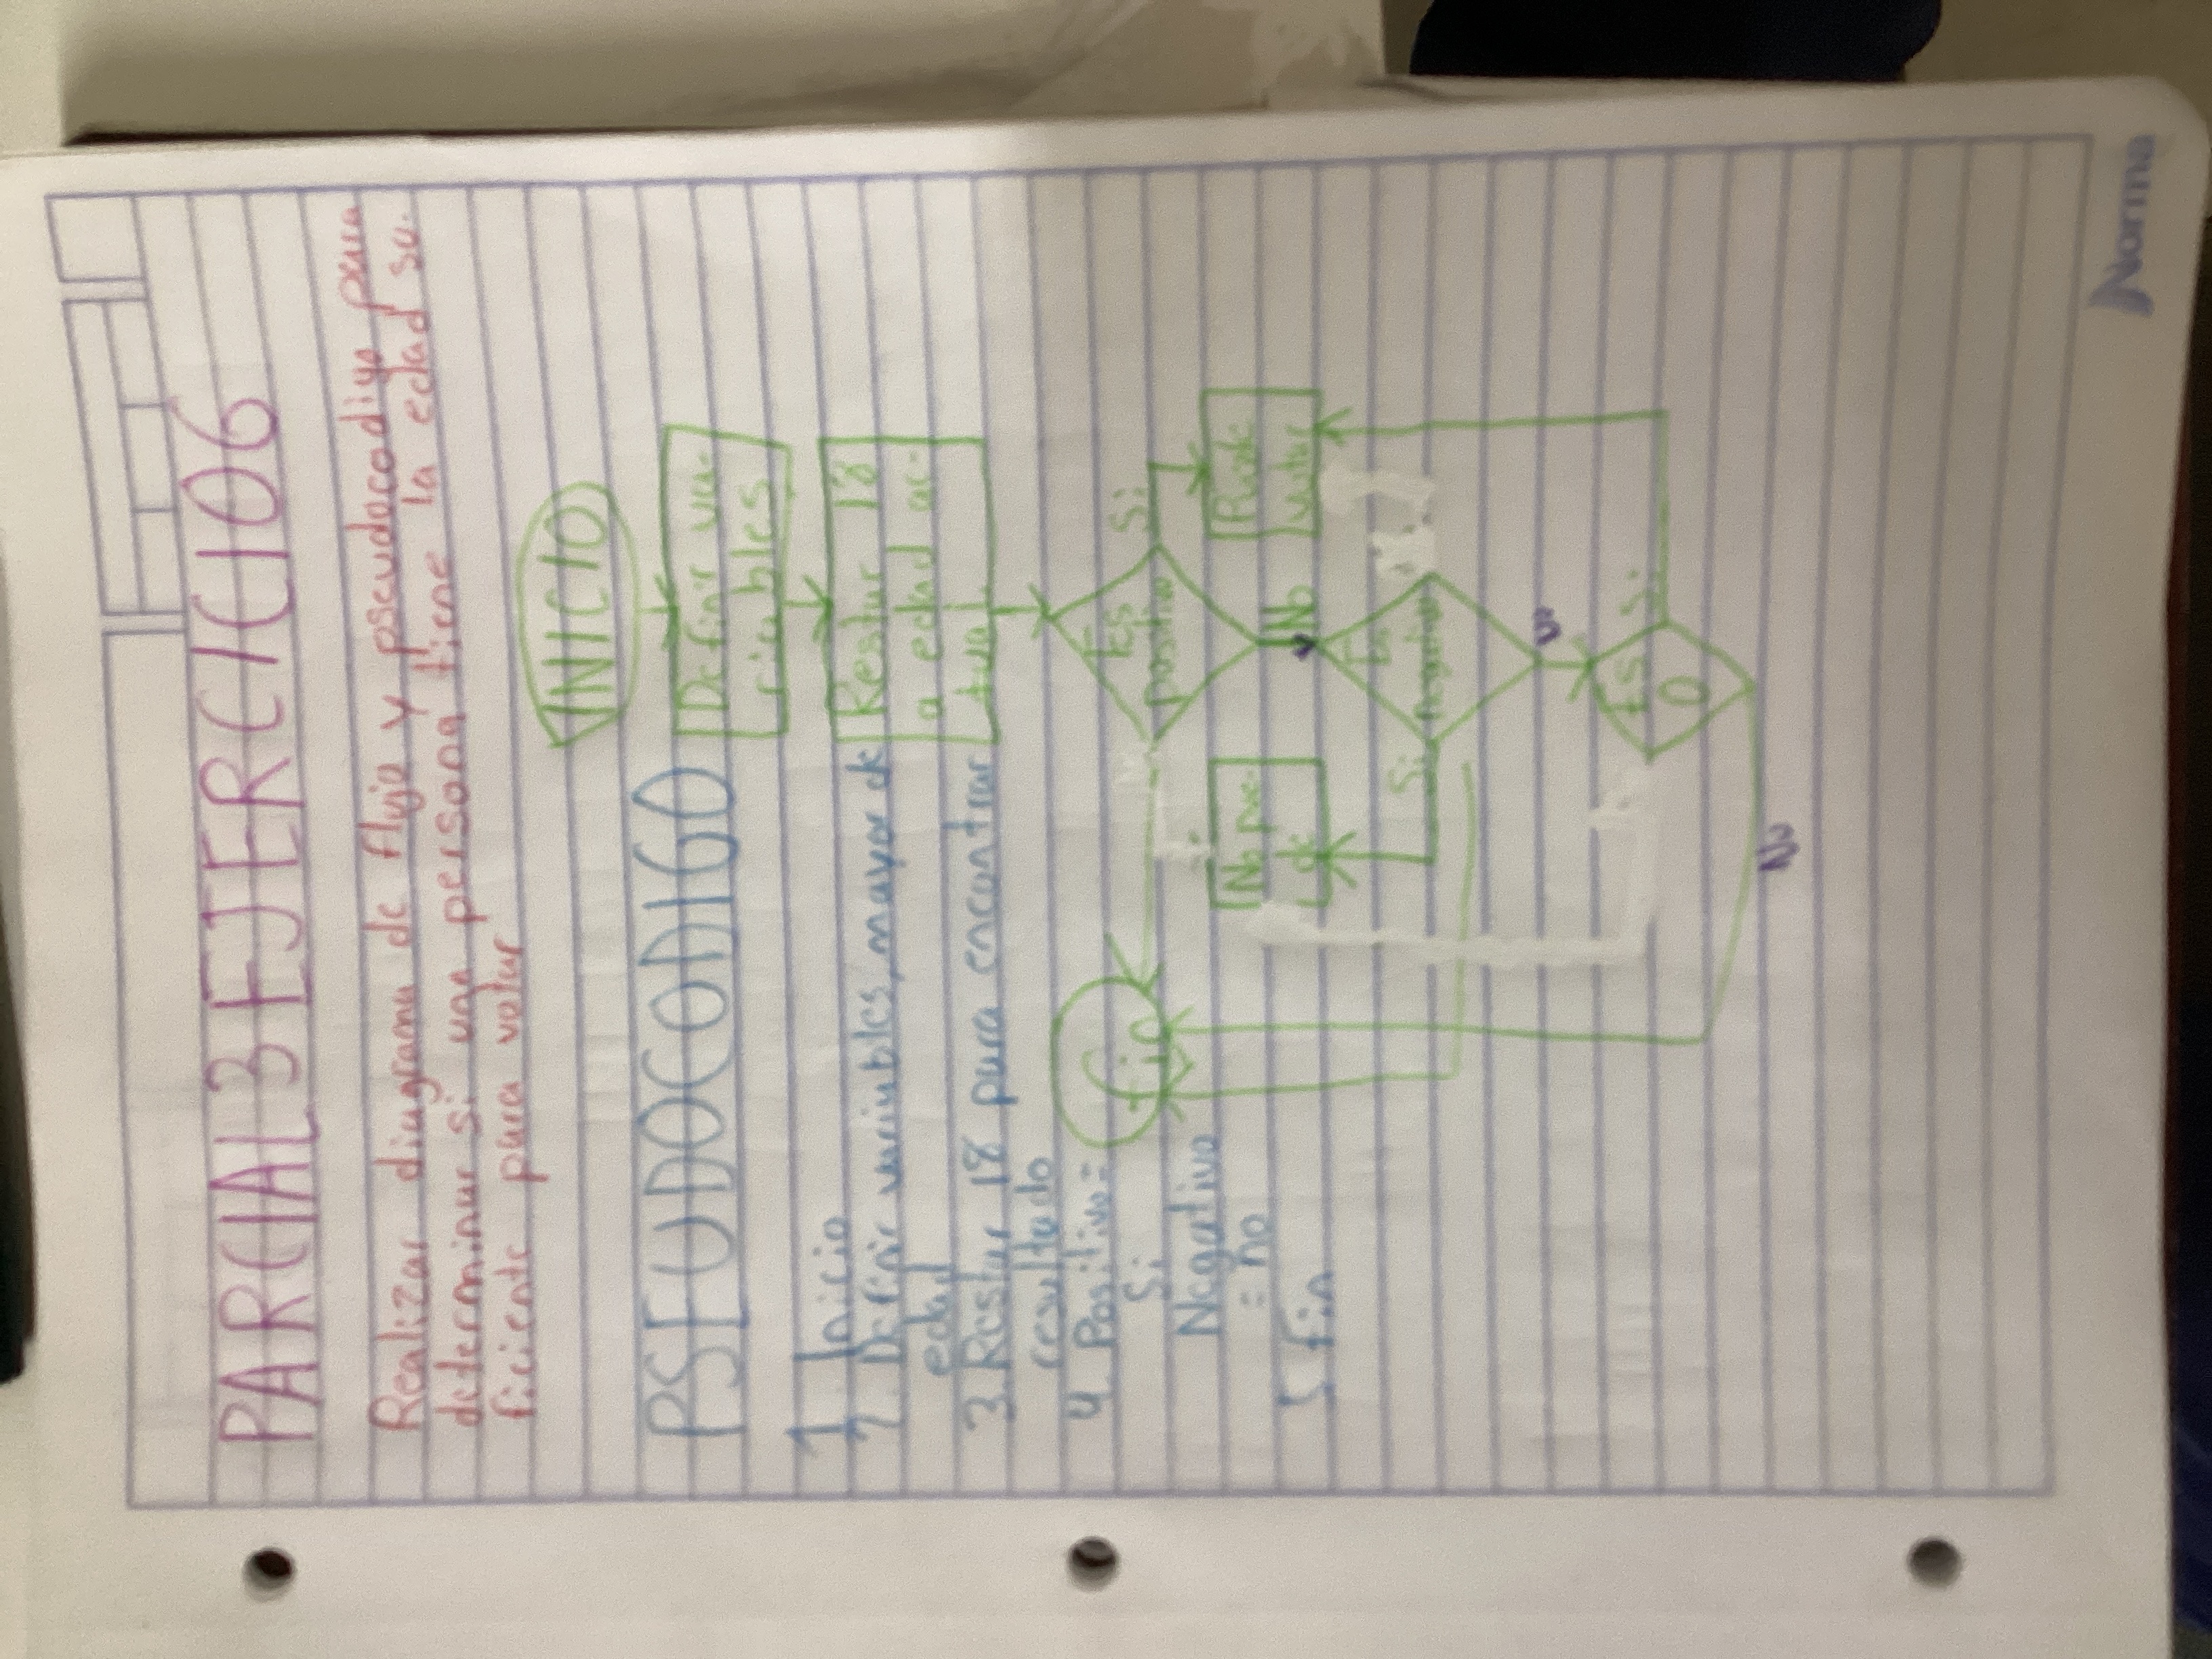 PARCIAL 3 EJERCICIO 6
Realizar diagrama de flujo y pseudocodigo para
determinar si una persona tiene la edad su-
ficiente para votar
INICIO
PSEUDOCODIGO
Definir va-
riables
1. Inicio
2. Definir variubles, mayor de
edad
3. Restar 18 para encontrar
resultado
4. Positivo=
Si
Negativo
= no
5 fin
Restar 18
a edad ac-
tual
Es
positivo
Si
Puede
votar
No
Es
negativo
Si
No pue-
de
Es
0
Si
No
fin
Norma